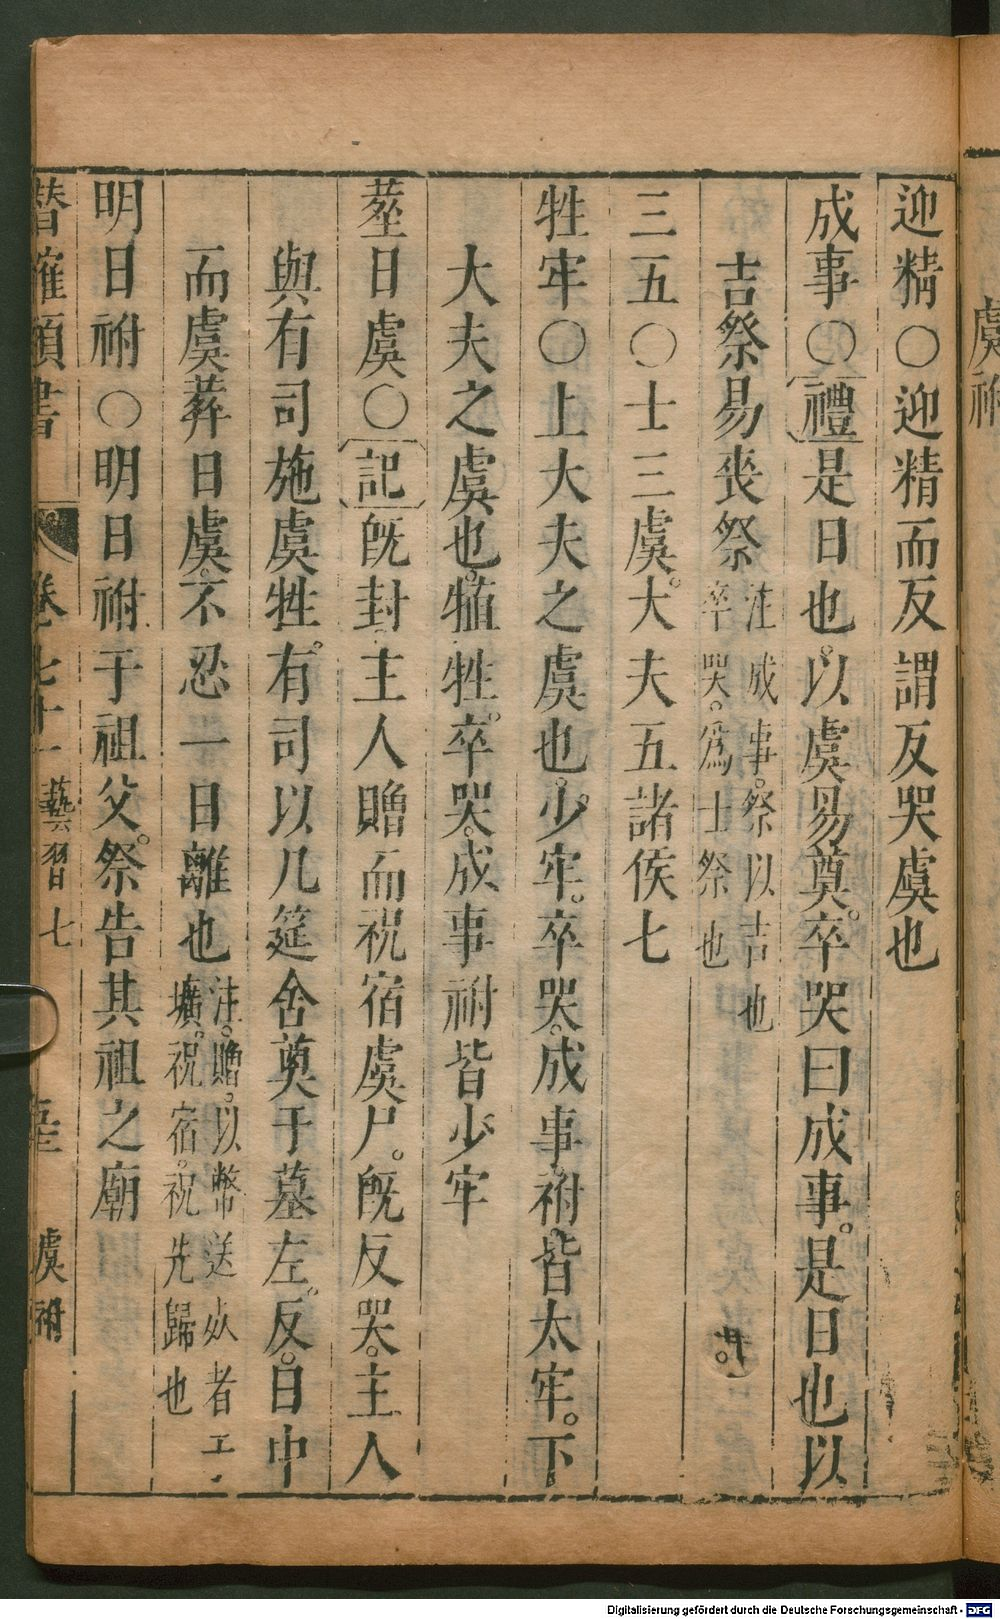 迎精○迎精而反謂反哭虞也
成事○禮是日也以虞易奠。卒哭曰成事。是日也以
吉祭易丧祭
注成事。祭以吉也
卒哭。爲士祭也
三五○士三虞。大夫五諸侯七
牲牢○上大夫之虞也。少牢。卒哭。成事。祔。皆太牢。下
大夫之虞也。犆牲。卒哭。成事祔皆少牢
塟日虞○記旣封主人贈而祝宿虞尸。旣反哭。主人
與有司施虞牲。有司以几筵舍奠于墓左。反。日中
而虞葬日虞。不忍一日離也
注。贈。以幣送
壙。祝宿。祝先歸也
明日祔○明日祔于祖父。祭告其祖之廟
潛確類書
卷七十一
藝習七
虞祔
虞祔
Digitalisierung gefördert durch die Deutsche Forschungsgemeinschaft - DFG